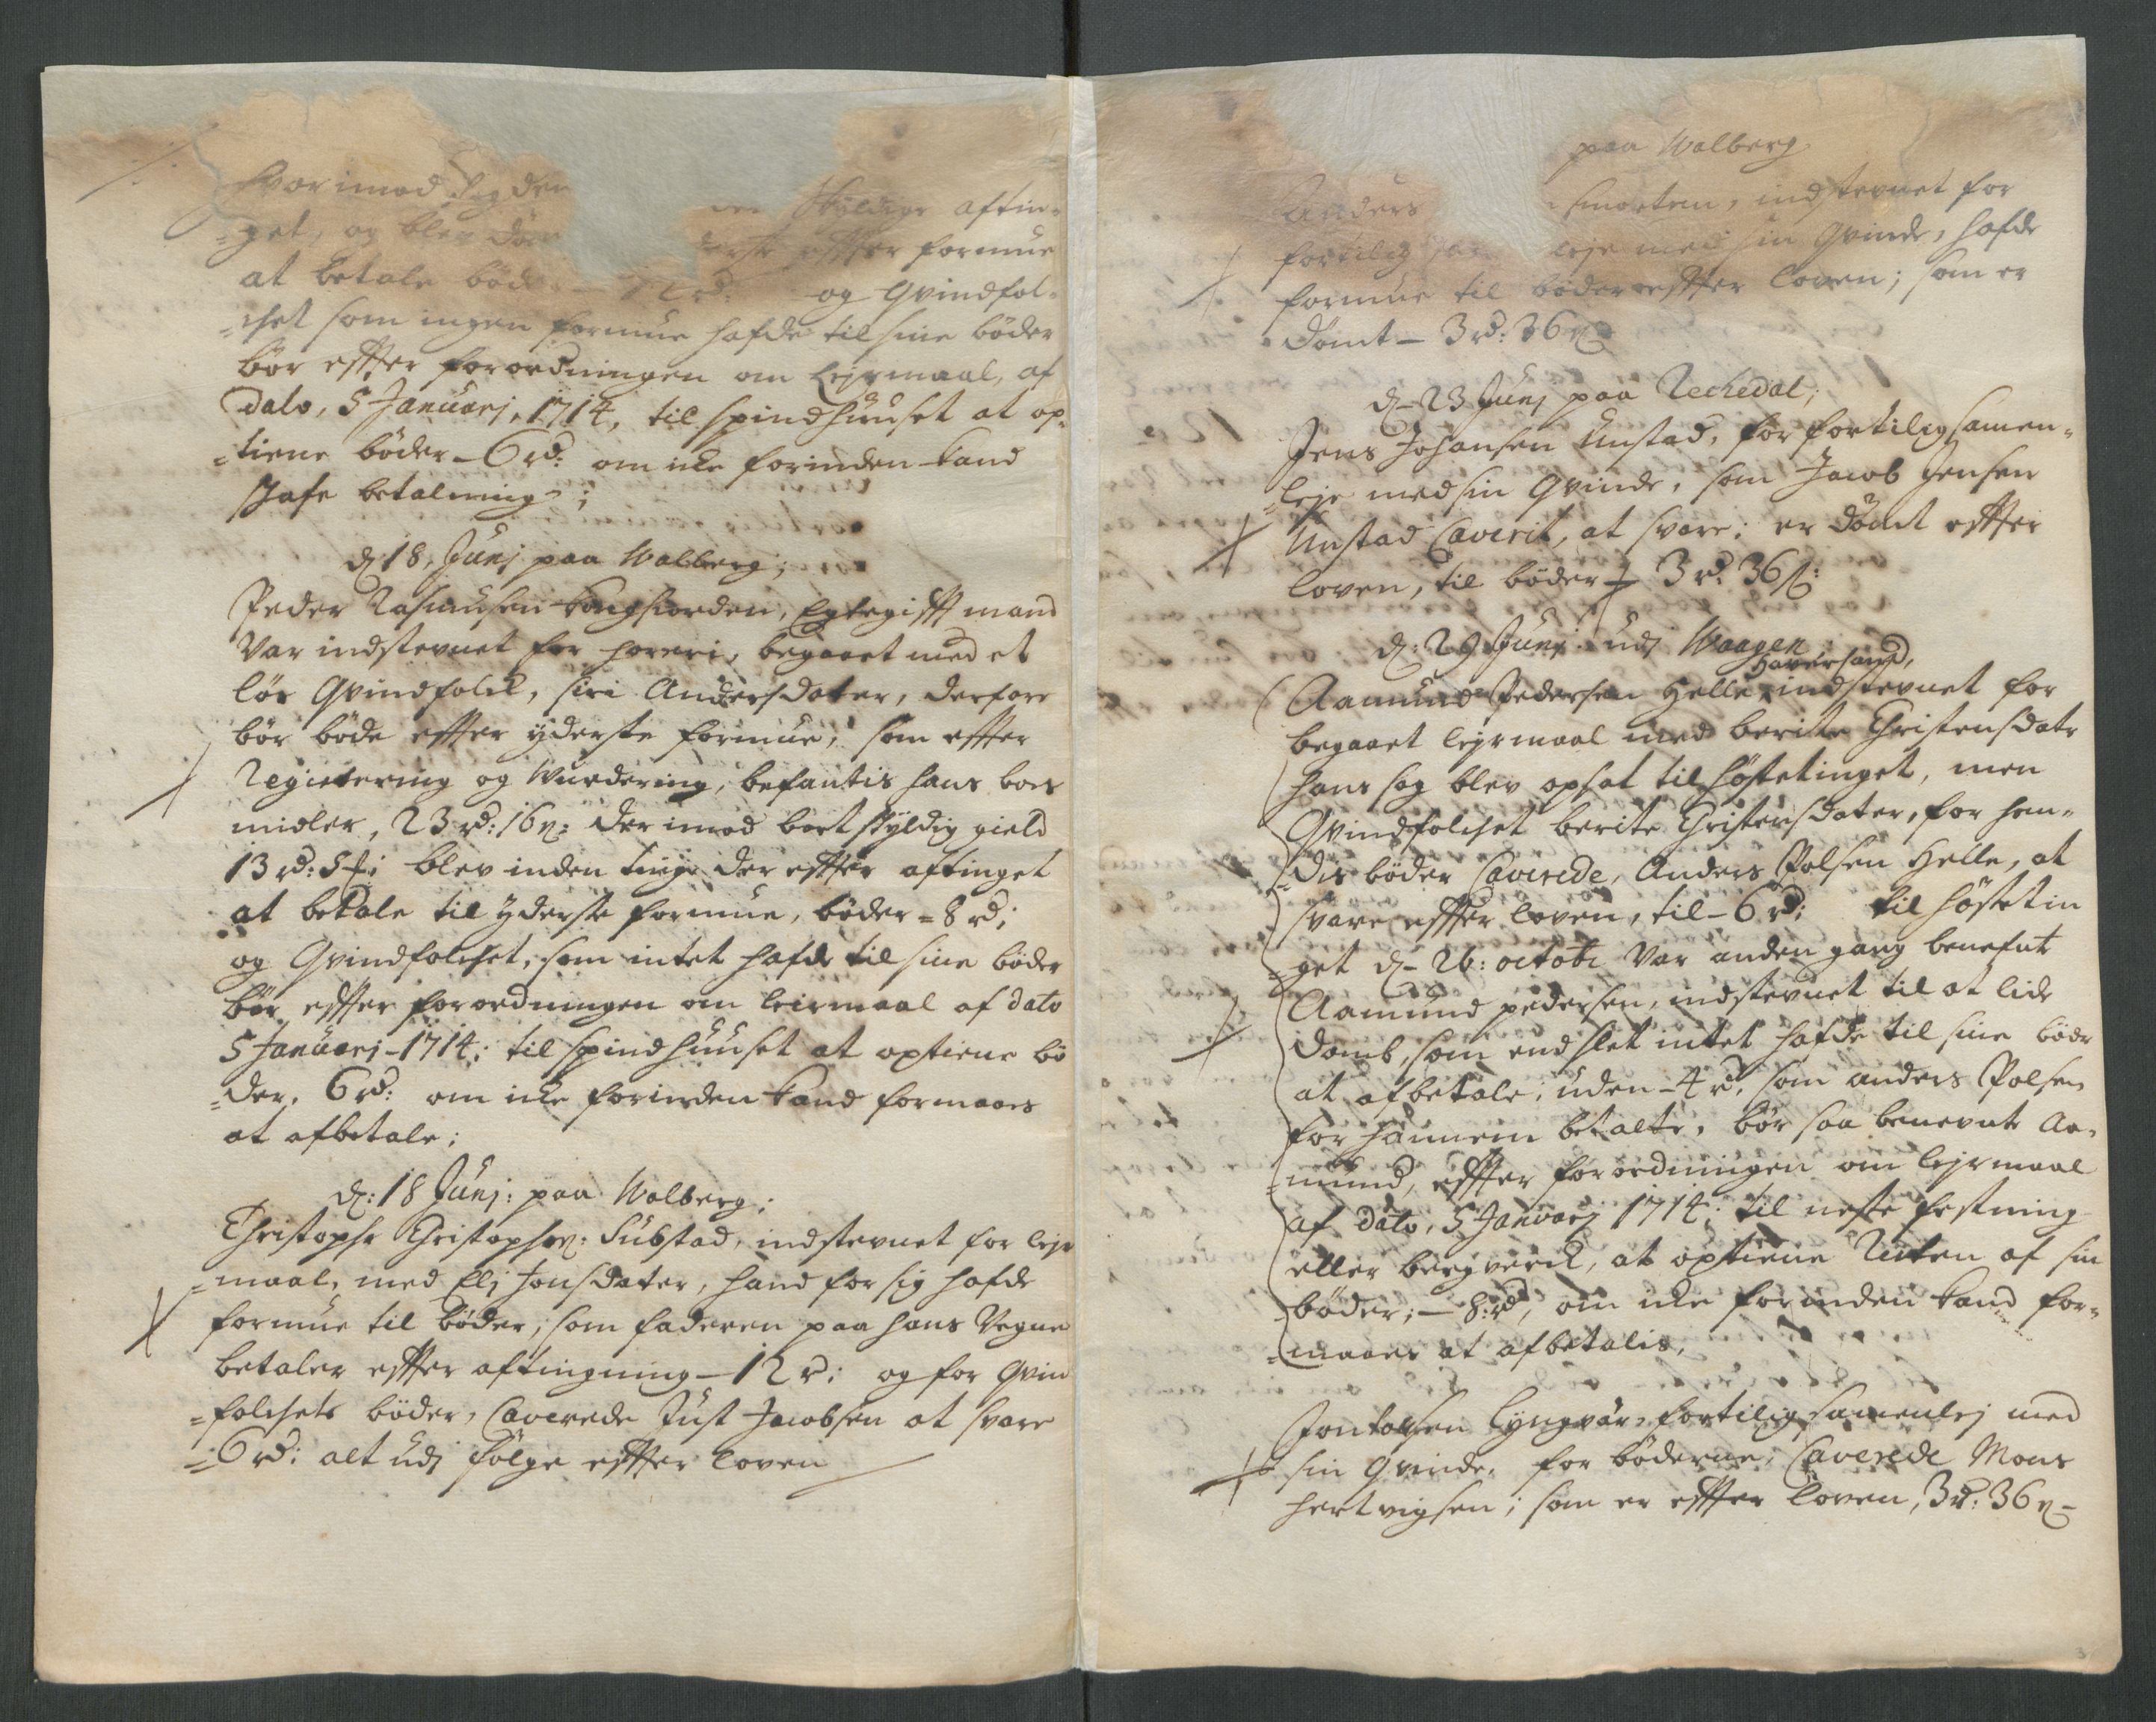 hvorimod sig den
skyldige aftin-
=get, og blev döm efter formue
at betale böd 12 rd: og Qvindfol-
=chet som ingen formue hafde til sine böder
bör effter forordningen om Lejermaal, af
Dato, 5 Januarj, 1714, til spindhuuset at op-
=tiene böder - 6 rd: om icke forinden kand
skafe betalning;
d: 18, Junj paa Walberg;
Peder Rasmusen Kongsiorden, Egtegifft mand
Var indstevnet for horeri, begaaet med et
lös Qvindfolck, siri Andersdater, derfore
börböde effter yderste formue, som effter
Registering og Wurdering, befantis hans boes
midler, 23 rd: 16 s: der imod bort skyldig gield
13 rd: 5 s: blev inden ting der effter aftinget
at betale til yderste formue, böder = 8 rd;
og Qvindfolchet, som intet hafde til sine böder
bör effter forordningen om leirmaal af dato
5 Januarj - 1714; til spindhuuset at optiene bö
=der, 6 rd: om icke forinden kand formaaes
at afbetale;
d: 18 Junj: paa Walberg;
Christopher Christophers: Substad, indstevnet for lejr
=maal, med Elj Jonsdater, hand for sig hafde
formue til böder, som faderen paa hans Vegne
betaler effter aftingning - 12 r: og for Qvin
=folchets böder, Caverede Just Jacobsen at svare
=6 rd: alt udj fölge effter loven
paa Walberg
Anders Smorten, indstevnet for
fortilig sam leje med sin Qvinde, hafde
formue til böder effter loven; som er
Dömt - 3 rd: 36 s
d - 23 Junj paa Rechedal;
Jens Johansen Unstad, for fortilig samen-
=leje med sin Qvinde, som Jacob Jensen
Unstad Caverit, at svare; er dömt effter
loven, til böder - 3 rd: 36 s:
d: 29 Junj udj Waagen
Haversand,
Aamund Pedersen Helle, indstevnet for
begaaet lejrmaal med berite Christensdatr
hans sag blev opsat til höstetinget, men
Qvindfolchet berite Christensdater, for hen-
=dis böder Caverede, Anders Polsen Helle, at
svare effter loven, til - 6 rd; til höstetin
=get d - 26: octobr Var anden gang benefnte
Aamund pedersen, indstevnet til at lide
domb, som endslet intet hafde til sine bödr
at afbetale, uden - 4 r, som anders Polsen
for hannem betalte, bör saa benevnte Aa-
=mund, effter forordningen om lejrmaal
af dato, 5 Januarj 1714; til neste festning
eller bergverck, at optiene Resten af sin
böder; - 8: rd, om icke forinden kand for-
=maaes at afbetalis,
Jon Lyngvær, fortilig samenlej med
sin Qvinde, for böderne, Caverede Mons
hertvigsen; som er effter loven, 3 r: 36 s -